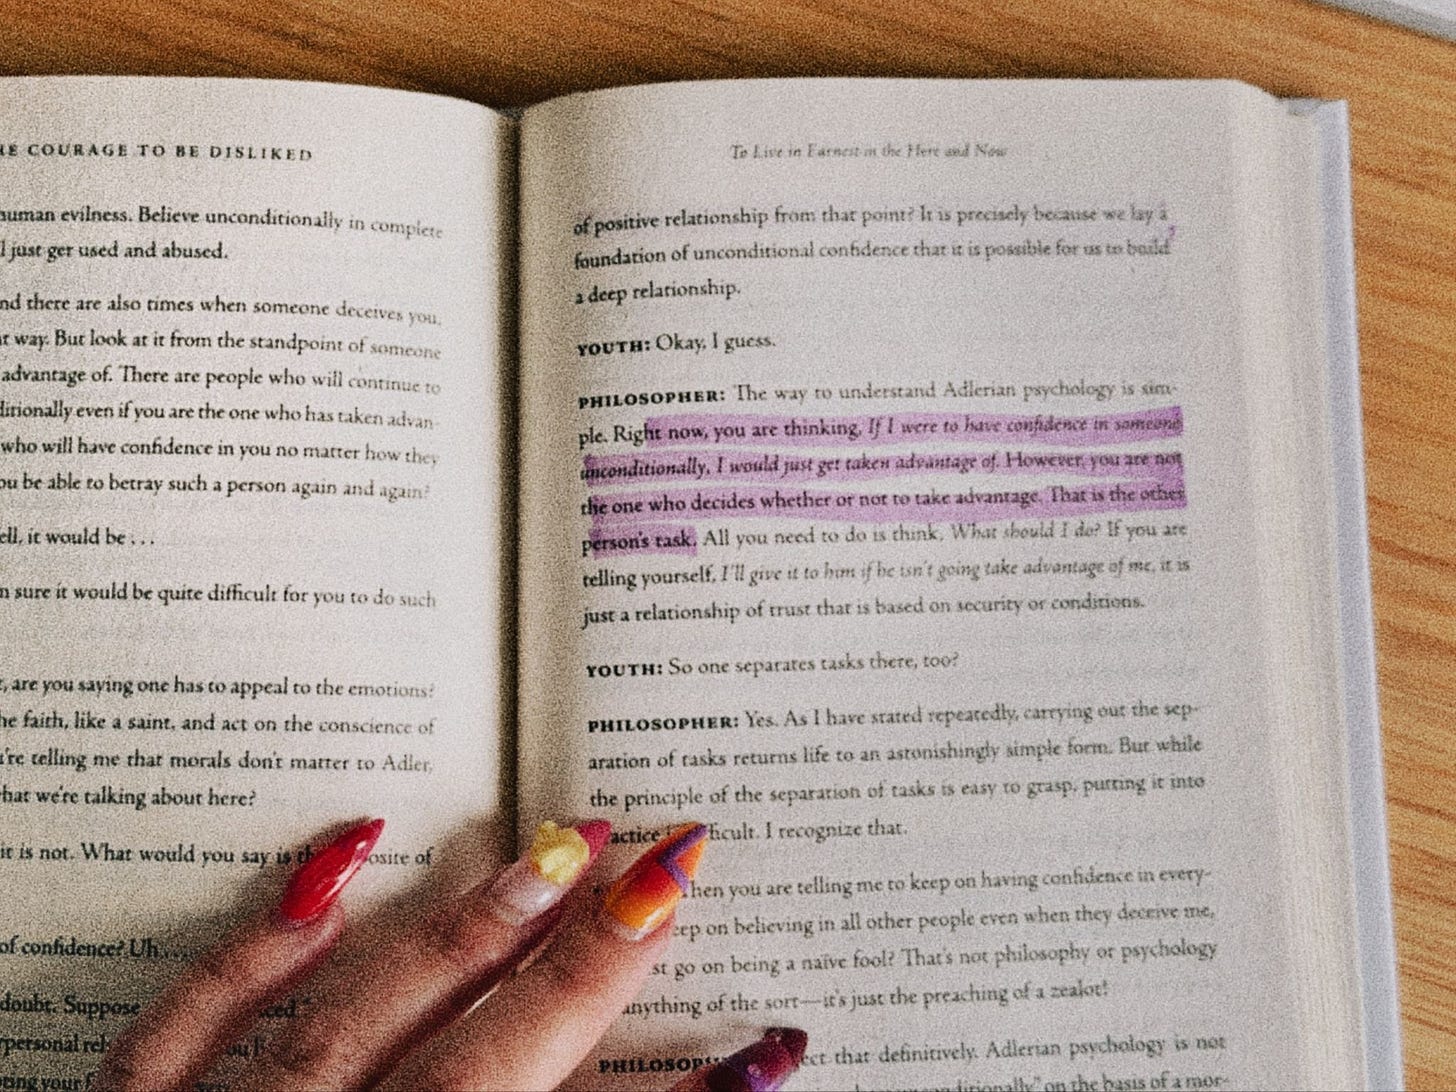 COURAGE TO BE DISLIKED
human evilness. Believe unconditionally in complete
just get used and abused.
there are also times when someone deceives you.
way. But look at it from the standpoint of someone
advantage of. There are people who will continue to
even if you are the one who has taken advan-
who will have confidence in you no matter how they
be able to betray such a person again and again?
it would be . . .
sure it would be quite difficult for you to do such
are you saying one has to appeal to the emotions?
faith, like a saint, and act on the conscience of
telling me that morals don't matter to Adler,
we're talking about here?
it is not. What would you say is of
of confidence? Uh . . .
doubt. Suppose
your
To Live in Earnest in the Here and Now
of positive relationship from that point? It is precisely because we lay a
foundation of unconditional confidence that it is possible for us to build
a deep relationship.
YOUTH: Okay, I guess.
PHILOSOPHER: The way to understand Adlerian psychology is sim-
ple. Right now, you are thinking, If I were to have confidence in someone
unconditionally, I would just get taken advantage of. However, you are not
the one who decides whether or not to take advantage. That is the other
person's task. All you need to do is think, What should I do? If you are
telling yourself, I'll give it to him if he isn't going take advantage of me, it is
just a relationship of trust that is based on security or conditions.
YOUTH: So one separates tasks there, too?
PHILOSOPHER: Yes. As I have stated repeatedly, carrying out the sep-
aration of tasks returns life to an astonishingly simple form. But while
the principle of the separation of tasks is easy to grasp, putting it into
I recognize that.
you are telling me to keep on having confidence in every-
on believing in all other people even when they deceive me,
go on being a naïve fool? That's not philosophy or psychology
anything of the sort—it's just the preaching of a zealot!
that definitively. Adlerian psychology is not
on the basis of a mor-